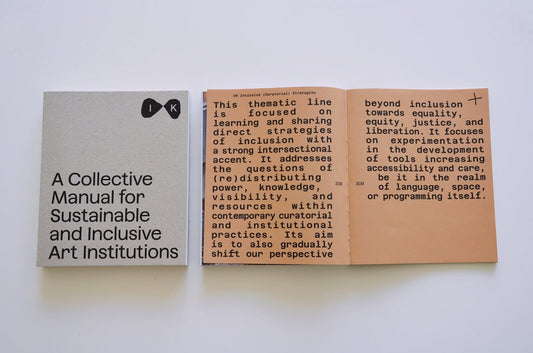 I K
A Collective
Manual for
Sustainable
and Inclusive
Art Institutions
04 Inclusive (Curatorial) Strategies
This thematic line
is focused on
learning and sharing
direct strategies
of inclusion with
a strong intersectional
accent. It addresses
the questions of
(re)distributing
power, knowledge,
visibility, and
resources within
contemporary curatorial
and institutional
practices. Its aim
is to also gradually
shift our perspective
308
309
beyond inclusion
towards equality,
equity, justice, and
liberation. It focuses
on experimentation
in the development
of tools increasing
accessibility and care,
be it in the realm
of language, space,
or programming itself.